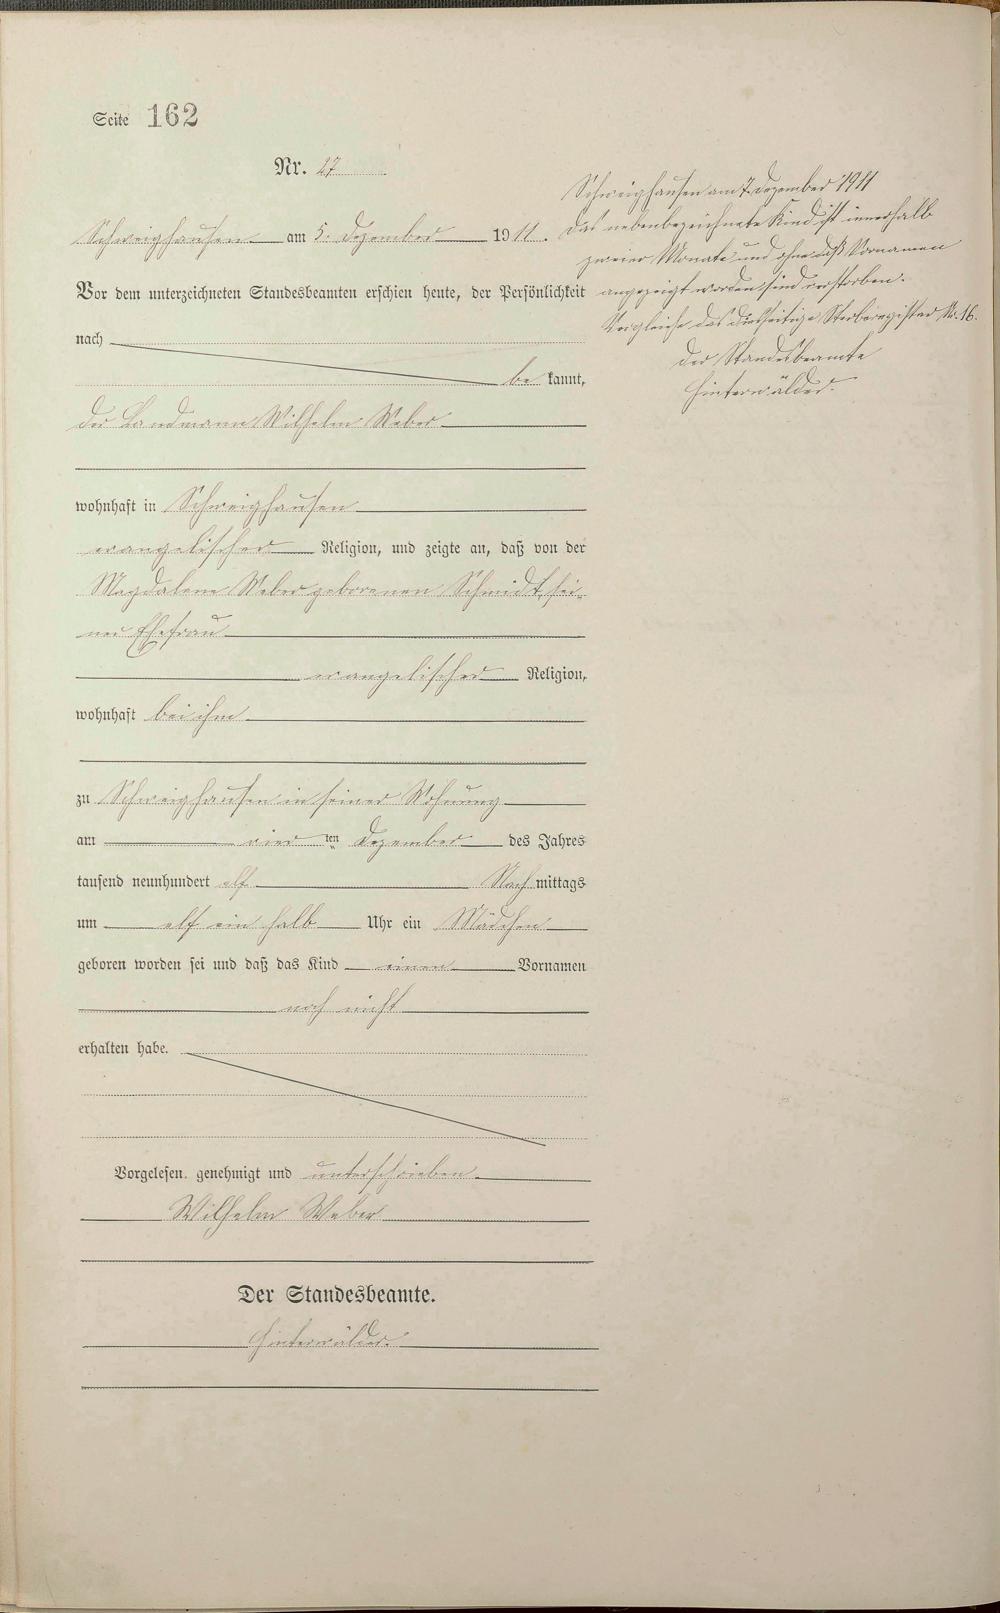 Seite 162
Nr. 27
Schweighausen am 5. Dezember 1911.
Vor dem unterzeichneten Standesbeamten erschien heute, der Persönlichkeit
nach
be kannt,
der Landmann Wilhelm Weber
wohnhaft in Schweighausen
evangelischer Religion, und zeigte an, daß von der
Magdalena Weber geborenen Schmidt, sei-
ner Ehefrau
evangelischer Religion,
wohnhaft bei ihm
zu Schweighausen in seiner Wohnung
am vier ten Dezember des Jahres
tausend neunhundert elf Nach mittags
um elf ein halb Uhr ein Mädchen
geboren worden sei und daß das Kind einen Vornamen
noch nicht
erhalten habe.
Vorgelesen, genehmigt und unterschrieben
Wilhelm Weber
Der Standesbeamte.
Hinterwälder.
Schweighausen am 7. Dezember 1911
Das nebenbezeichnete Kind ist innerhalb
zweier Monate und ohne daß Vornamen
angezeigt worden sind verstorben.
Vergleiche das diesseitige Sterberegister Nr. 16.
Der Standesbeamte
Hinterwälder.